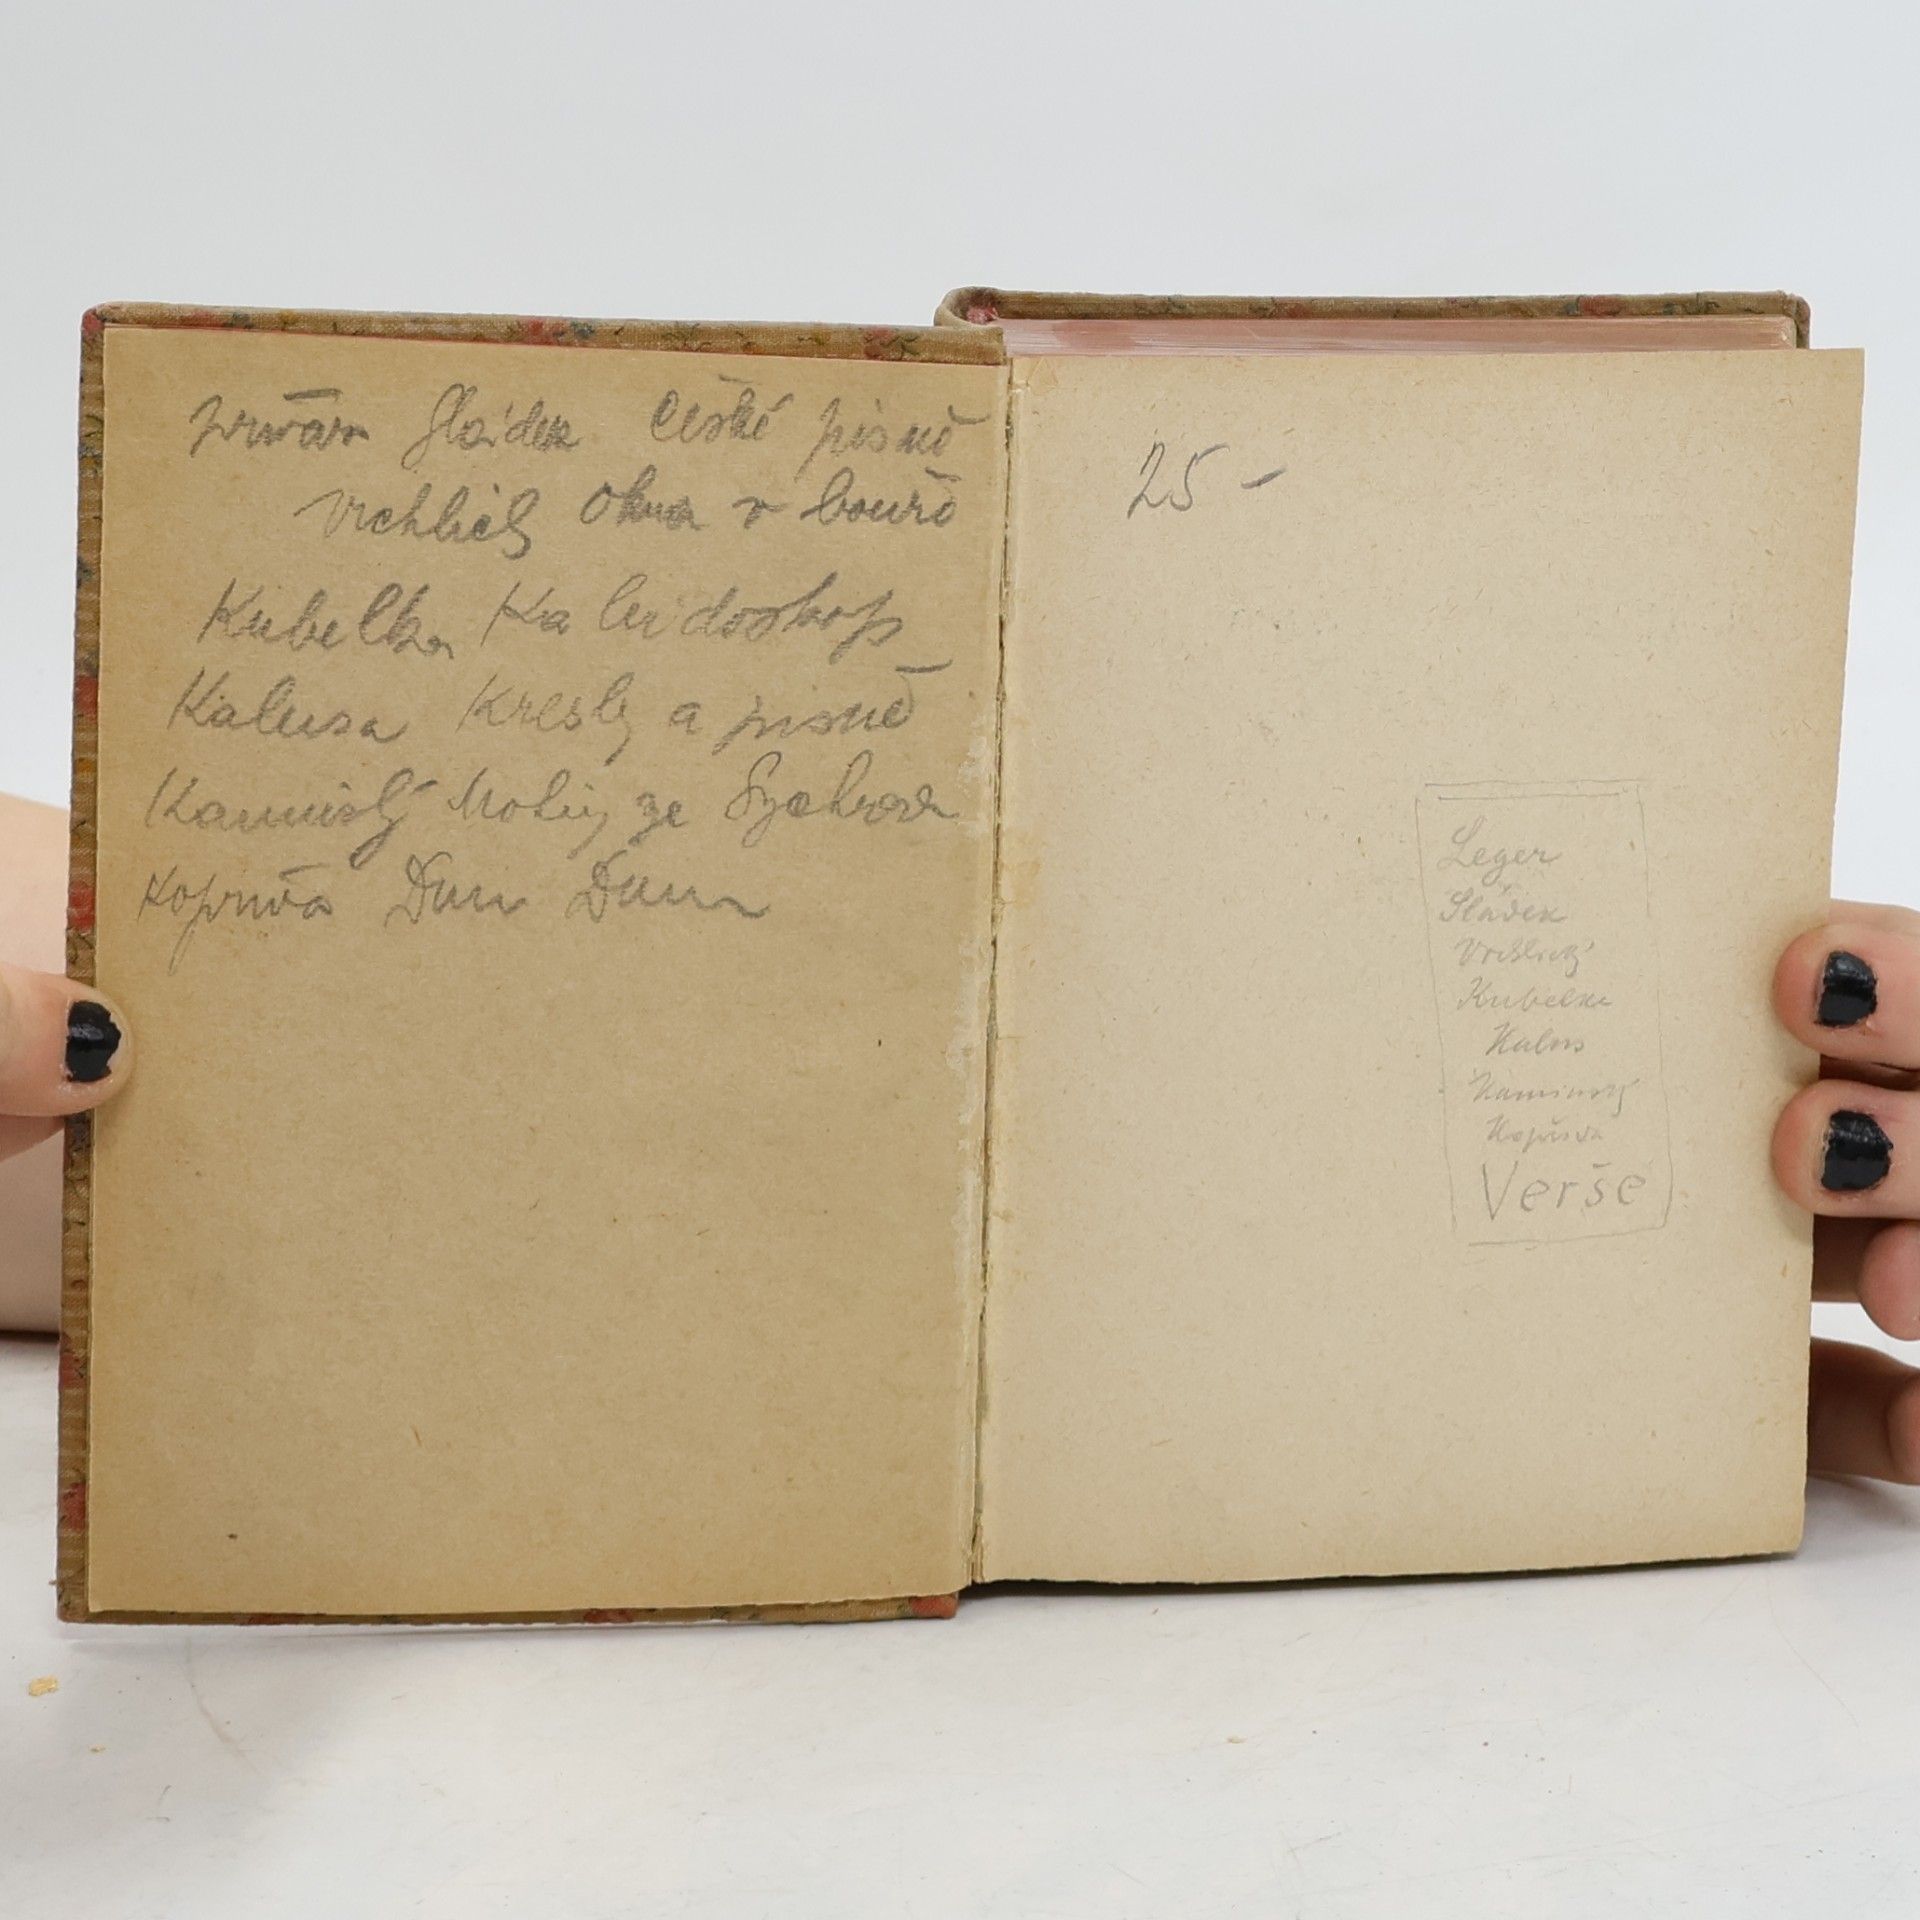 Sládek České písně
Vrchlick Okna v bouři
Kubelka Kaleidoskop
Kalusa Kresby a písně
Kaminský Motivy ze Sychrova
Kopřiva Dum Dum
25-
Leger
Sládek
Vrchlický
Kubelka
Kalus
Kaminský
Kopřiva
Verše